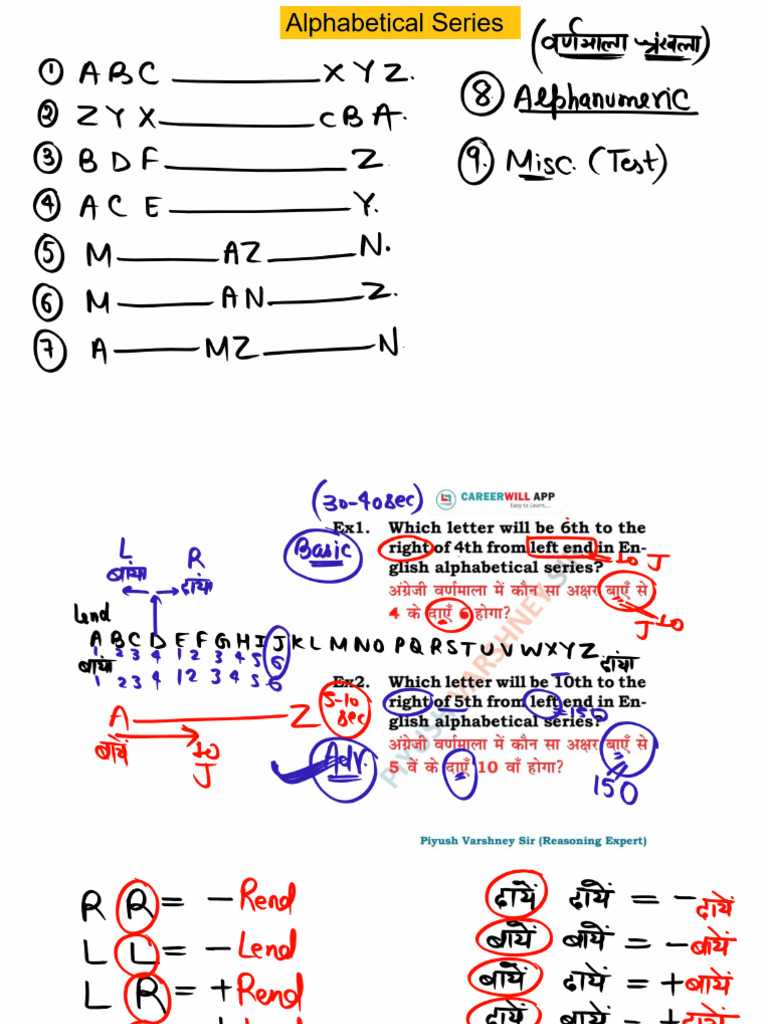 Alphabetical Series
(वर्णमाला श्रंखला)
① A B C ________ X Y Z.
② Z Y X ________ C B A.
③ B D F ________ Z
④ A C E ________ Y.
⑤ M ____ AZ ____ N.
⑥ M ____ AN ____ Z.
⑦ A ____ MZ ____ N
⑧ Alphanumeric
⑨. Misc. (Test)
(30-40sec)
CAREERWILL APP
Easy to Learn...
Basic
Ex1. Which letter will be 6th to the
right of 4th from left end in En-
glish alphabetical series?
10 J
अंग्रेजी वर्णमाला में कौन सा अक्षर बाएँ से
4 के दाएँ 6 होगा?
J 10
L R
बायां दायां
Lend
A B C D E F G H I J K L M N O P Q R S T U V W X Y Z
बायां दायां
1 2 3 4 1 2 3 4 5 6
1 2 3 4 1 2 3 4 5 6
Ex2. Which letter will be 10th to the
right of 5th from left end in En-
glish alphabetical series?
15 O
अंग्रेजी वर्णमाला में कौन सा अक्षर बाएँ से
5 वें के दाएँ 10 वाँ होगा?
15 O
A ____ Z
5-10
sec
बायें 10
J
Adv.
PIYUSH VARSHNEY SIR
Piyush Varshney Sir (Reasoning Expert)
R R = - Rend
L L = - Lend
L R = + Rend
दायें दायें = - दायें
बायें बायें = - बायें
बायें दायें = + बायें
दायें बायें = + दायें